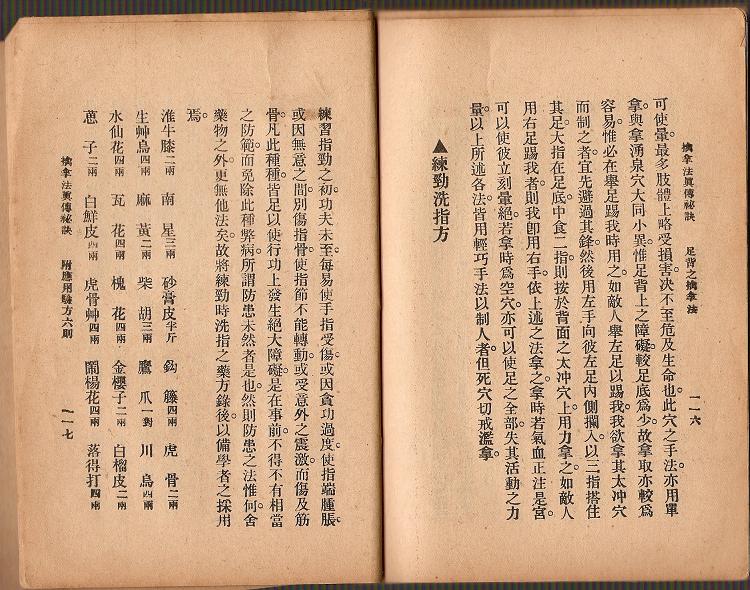 擒拿法眞傳祕訣　足背之擒拿法　一一六
可使暈。最多肢體上略受損害。決不至危及生命也。此穴之手法。亦用單
拿。與拿湧泉穴大同小異。惟足背上之障礙。較足底爲少。故拿取亦較爲
容易。惟必在舉足踢我時用之。如敵人舉左足以踢我。我欲拿其太冲穴
而制之者。宜先避過其鋒。然後用左手向彼左足內側攔入。以三指搭住
其足。大指在足底。中食二指。則按於背面之太冲穴上。用力拿之。如敵人
用右足踢我者。則我卽用右手。依上述之法拿之。拿時若氣血正注是宮。
可以使彼立刻暈絕。若拿時爲空穴。亦可以使足之全部。失其活動之力
量。以上所述各法。皆用輕巧手法以制人者。但死穴切戒濫拿。
▲練勁洗指方
練習指勁之初。功夫未至。每易使手指受傷。或因貪功過度。使指端腫脹。
或因無意之間。別傷指骨。使指節不能轉動。或受意外之震激。而傷及筋
骨。凡此種種。皆足以使行功上發生絕大障礙。是在事前。不得不有相當
之防範。而免除此種弊病。所謂防患未然者是也。然則防患之法惟何。舍
藥物之外。更無他法矣。故將練勁時洗指之藥方錄後。以備學者之採用
焉。
淮牛膝二兩　南星三兩　砂膏皮半斤　鈎籐四兩　虎骨二兩
生艸烏四兩　麻黃二兩　柴胡三兩　鷹爪一對　川烏四兩
水仙花四兩　瓦花四兩　槐花四兩　金櫻子二兩　白榴皮二兩
蒠子二兩　白鮮皮四兩　虎骨艸四兩　鬧楊花四兩　落得打四兩
擒拿法眞傳祕訣　附應用驗方六則　一一七